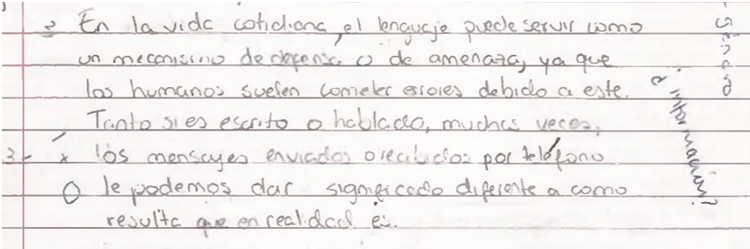 2 En la vida cotidiana, el lenguaje puede servir como
un mecanismo de defensa o de amenaza, ya que
los humanos suelen cometer errores debido a este.
Tanto si es escrito o hablado, muchas veces,
3- x los mensajes enviados o recibidos por teléfono
O le podemos dar significado diferente a como
resulta que en realidad es.
información?